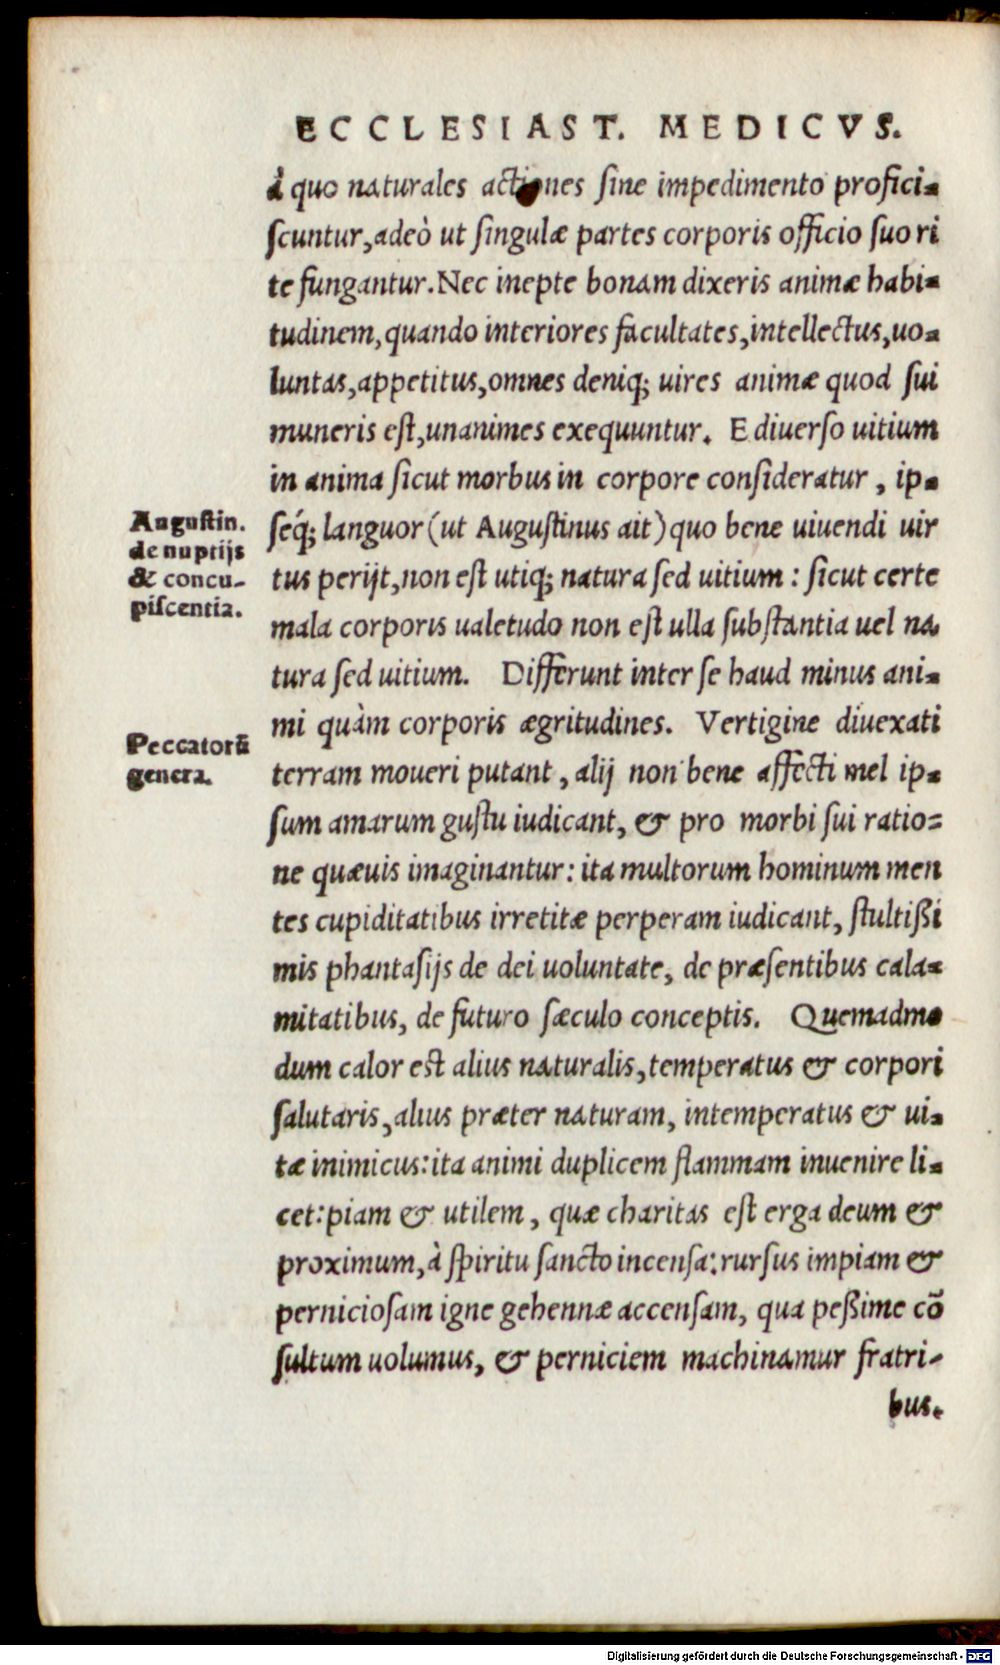 ECCLESIAST. MEDICVS.
à quo naturales actiones ſine impedimento profici-
ſcuntur, adeò ut ſingulæ partes corporis officio ſuo ri
te fungantur. Nec inepte bonam dixeris animæ habi-
tudinem, quando interiores facultates, intellectus, uo-
luntas, appetitus, omnes deniq; uires animæ quod ſui
muneris eſt, unanimes exequuntur. E diuerſo uitium
in anima ſicut morbus in corpore conſideratur, ip-
Auguſtin.
de nuptijs
& concu-
piſcentia.
ſéq; languor (ut Auguſtinus ait) quo bene uiuendi uir
tus perijt, non eſt utiq; natura ſed uitium: ſicut certe
mala corporis ualetudo non eſt ulla ſubſtantia uel na
tura ſed uitium. Differunt inter ſe haud minus ani-
mi quàm corporis ægritudines. Vertigine diuexati
Peccatorũ
genera.
terram moueri putant, alij non bene affecti mel ip-
ſum amarum guſtu iudicant, & pro morbi ſui ratio-
ne quæuis imaginantur: ita multorum hominum men
tes cupiditatibus irretitæ perperam iudicant, ſtultißi
mis phantaſijs de dei uoluntate, de præſentibus cala-
mitatibus, de futuro ſæculo conceptis. Quemadmo
dum calor eſt alius naturalis, temperatus & corpori
ſalutaris, alius præter naturam, intemperatus & ui-
tæ inimicus: ita animi duplicem flammam inuenire li-
cet: piam & utilem, quæ charitas eſt erga deum &
proximum, à ſpiritu ſancto incenſa: rurſus impiam &
pernicioſam igne gehennæ accenſam, qua peßime cō
ſultum uolumus, & perniciem machinamur fratri-
bus.
Digitalisierung gefördert durch die Deutsche Forschungsgemeinschaft - DFG